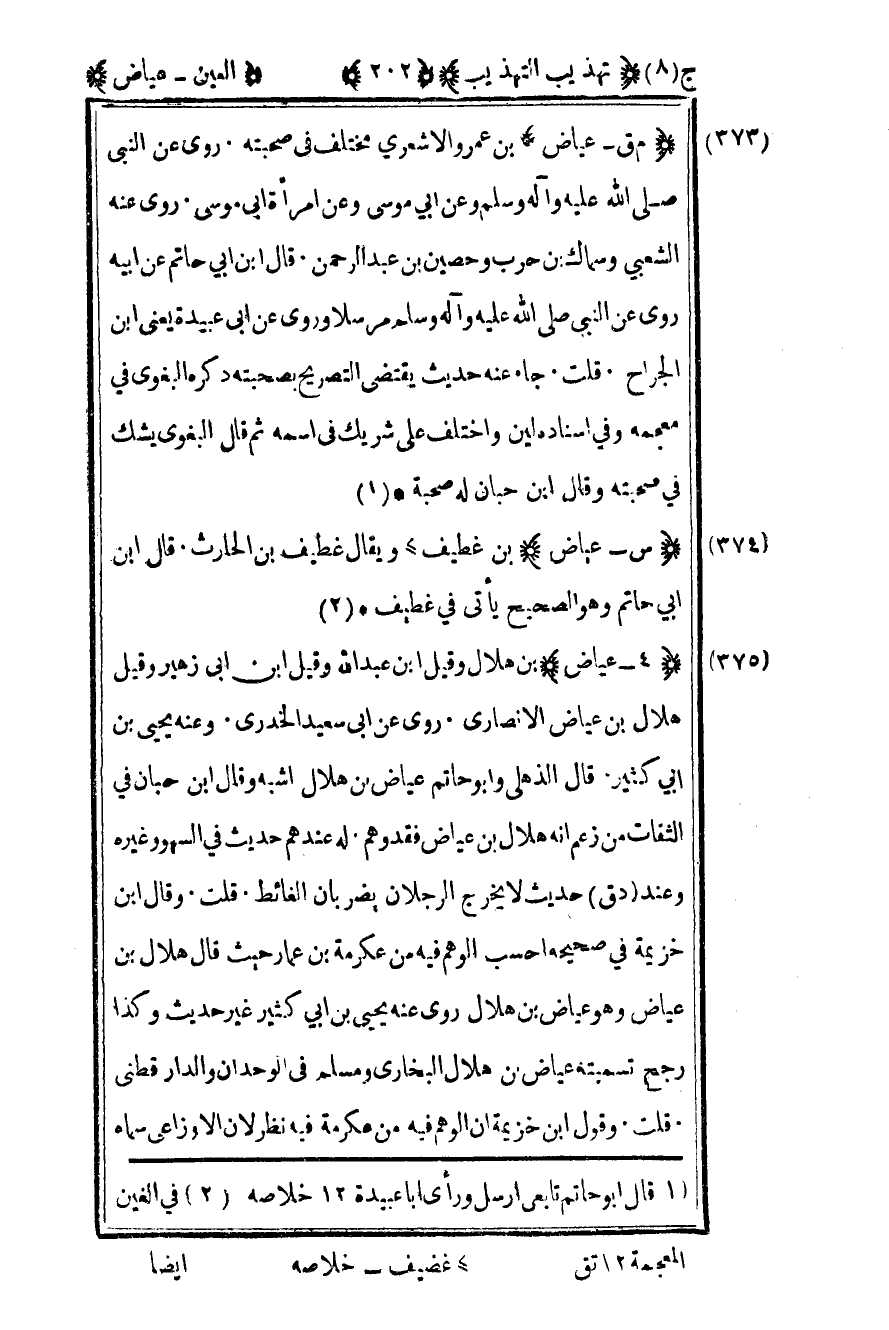 ج(٨) ﴿ تهذيب التهذيب ﴾ ﴿ ٢٠٢ ﴾ ﴿ العين ـ عياض ﴾
(٣٧٣) ﴿ م ق ـ عياض ﴾ بن عمرو الاشعري مختلف في صحبته ٠ روى عن النبي
صلى الله عليه وآله وسلم وعن ابي موسى وعن امرأة ابي موسى ٠ روى عنه
الشعبي وسماك بن حرب وحصين بن عبدالرحمن ٠ قال ابن ابي حاتم عن ابيه
روى عن النبي صلى الله عليه وآله وسلم مرسلا وروى عن ابي عبيدة يعنى ابن
الجراح ٠ قلت ٠ جاء عنه حديث يقتضى التصريح بصحبته ذكره البغوى في
معجمه وفي اسناده لين واختلف على شريك في اسمه ثم قال البغوى يشك
في صحبته وقال ابن حبان له صحبة * (١)
(٣٧٤) ﴿ س ـ عياض ﴾ بن غطيف ٤ ويقال غطيف بن الحارث ٠ قال ابن
ابي حاتم وهو الصحيح يأتى في غطيف * (٢)
(٣٧٥) ﴿ ٤ ـ عياض ﴾ بن هلال وقيل ابن عبدالله وقيل ابن ابي زهير وقيل
هلال بن عياض الانصارى ٠ روى عن ابى سعيد الخدرى ٠ وعنه يحيى بن
ابي كثير ٠ قال الذهلى وابوحاتم عياض بن هلال اشبه وقال ابن حبان في
الثقات من زعم انه هلال بن عياض فقد وهم ٠ له عندهم حديث في السهو وغيره
وعند (د ق) حديث لا يخرج الرجلان يضربان الغائط ٠ قلت ٠ وقال ابن
خزيمة في صحيحه احسب الوهم فيه من عكرمة بن عمار حيث قال هلال بن
عياض وهو عياض بن هلال روى عنه يحيى بن ابي كثير غير حديث وكذا
رجح تسميته عياض بن هلال البخارى ومسلم في الوحدان والدارقطنى
٠ قلت ٠ وقول ابن خزيمة ان الوهم فيه من عكرمة فيه نظر لان الاوزاعى سماه
(١ قال ابو حاتم تابعى ارسل ورأى ابا عبيدة ١٢ خلاصه (٢) في الغين
المعجمة ١٢ تق ٤ غضيف ـ خلاصه ايضا